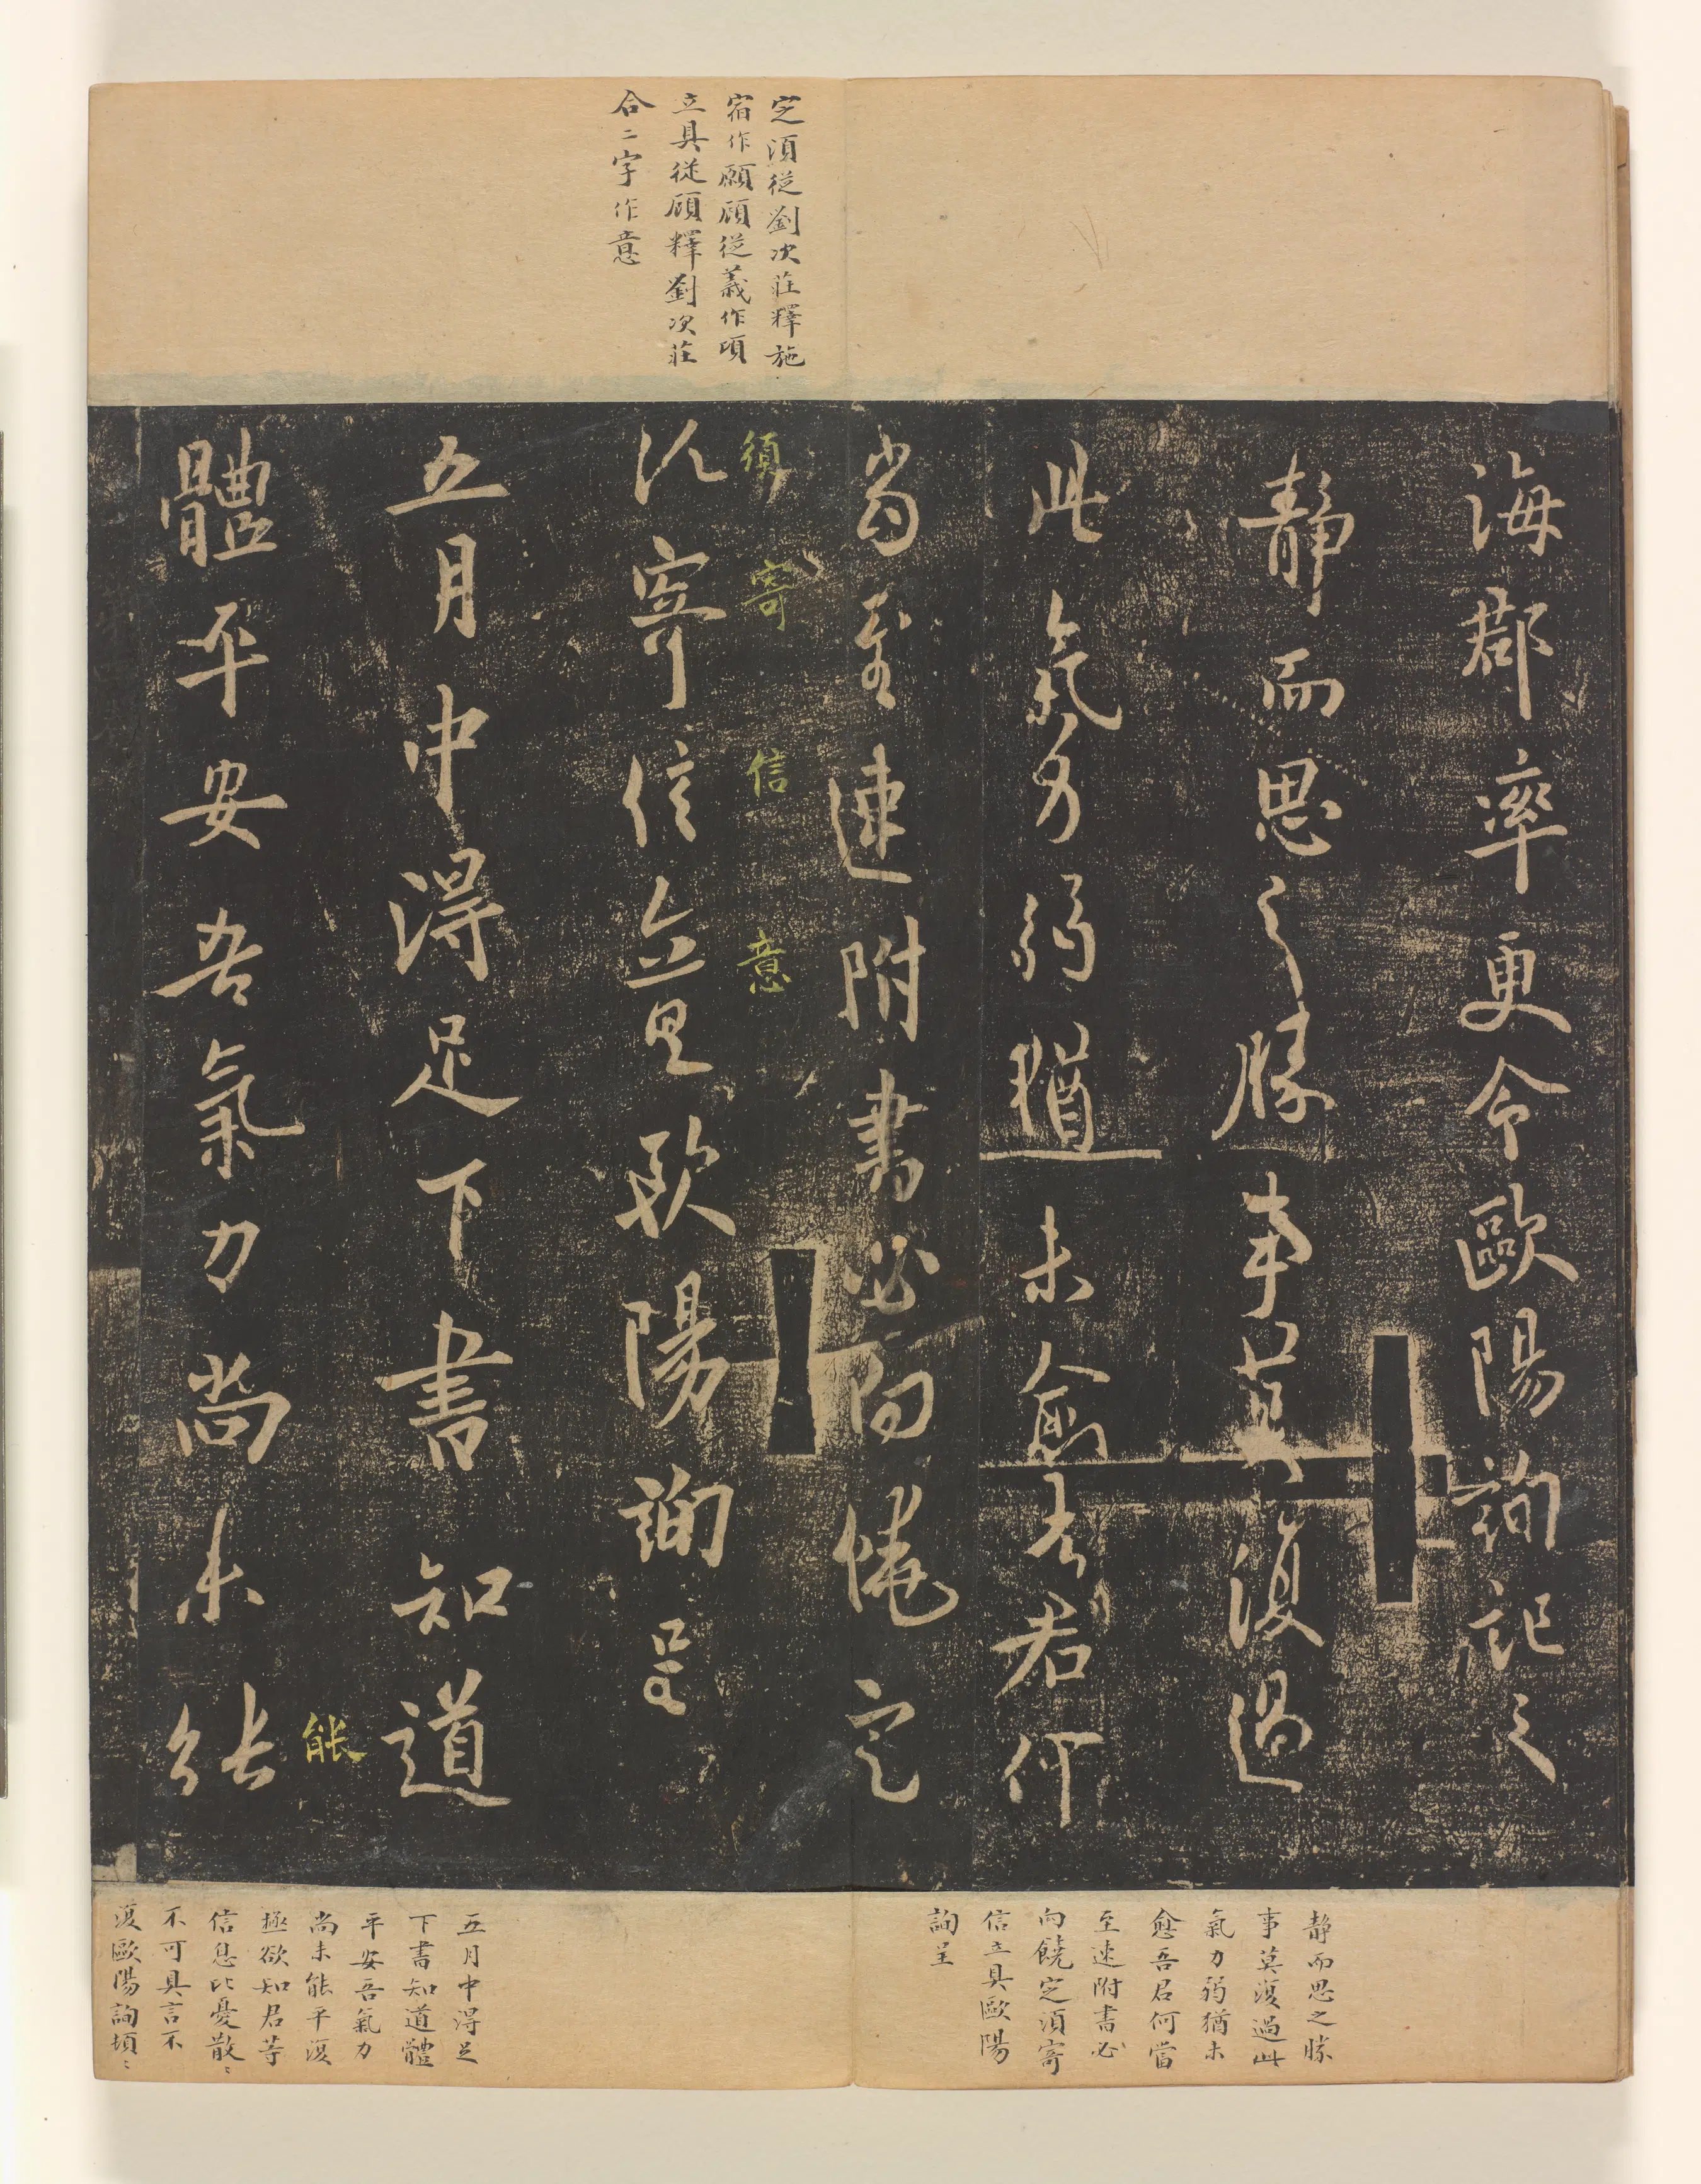 定須從劉次莊釋施
宿作願顧從義作頃
立具從顧釋劉次莊
合二字作意
海郡率更令歐陽詢祀之
靜而思之勝事莫復過
此氣力弱猶未愈吾君何
當至速附書必向饒定
須寄信立具歐陽詢呈
須寄信意
五月中得足下書知道
體平安吾氣力尚未能
能
靜而思之勝
事莫復過此
氣力弱猶未
愈吾君何當
至速附書必
向饒定須寄
信立具歐陽
詢呈
五月中得足
下書知道體
平安吾氣力
尚未能平復
極欲知君等
信息比憂散〻
不可具言不
復歐陽詢頓〻